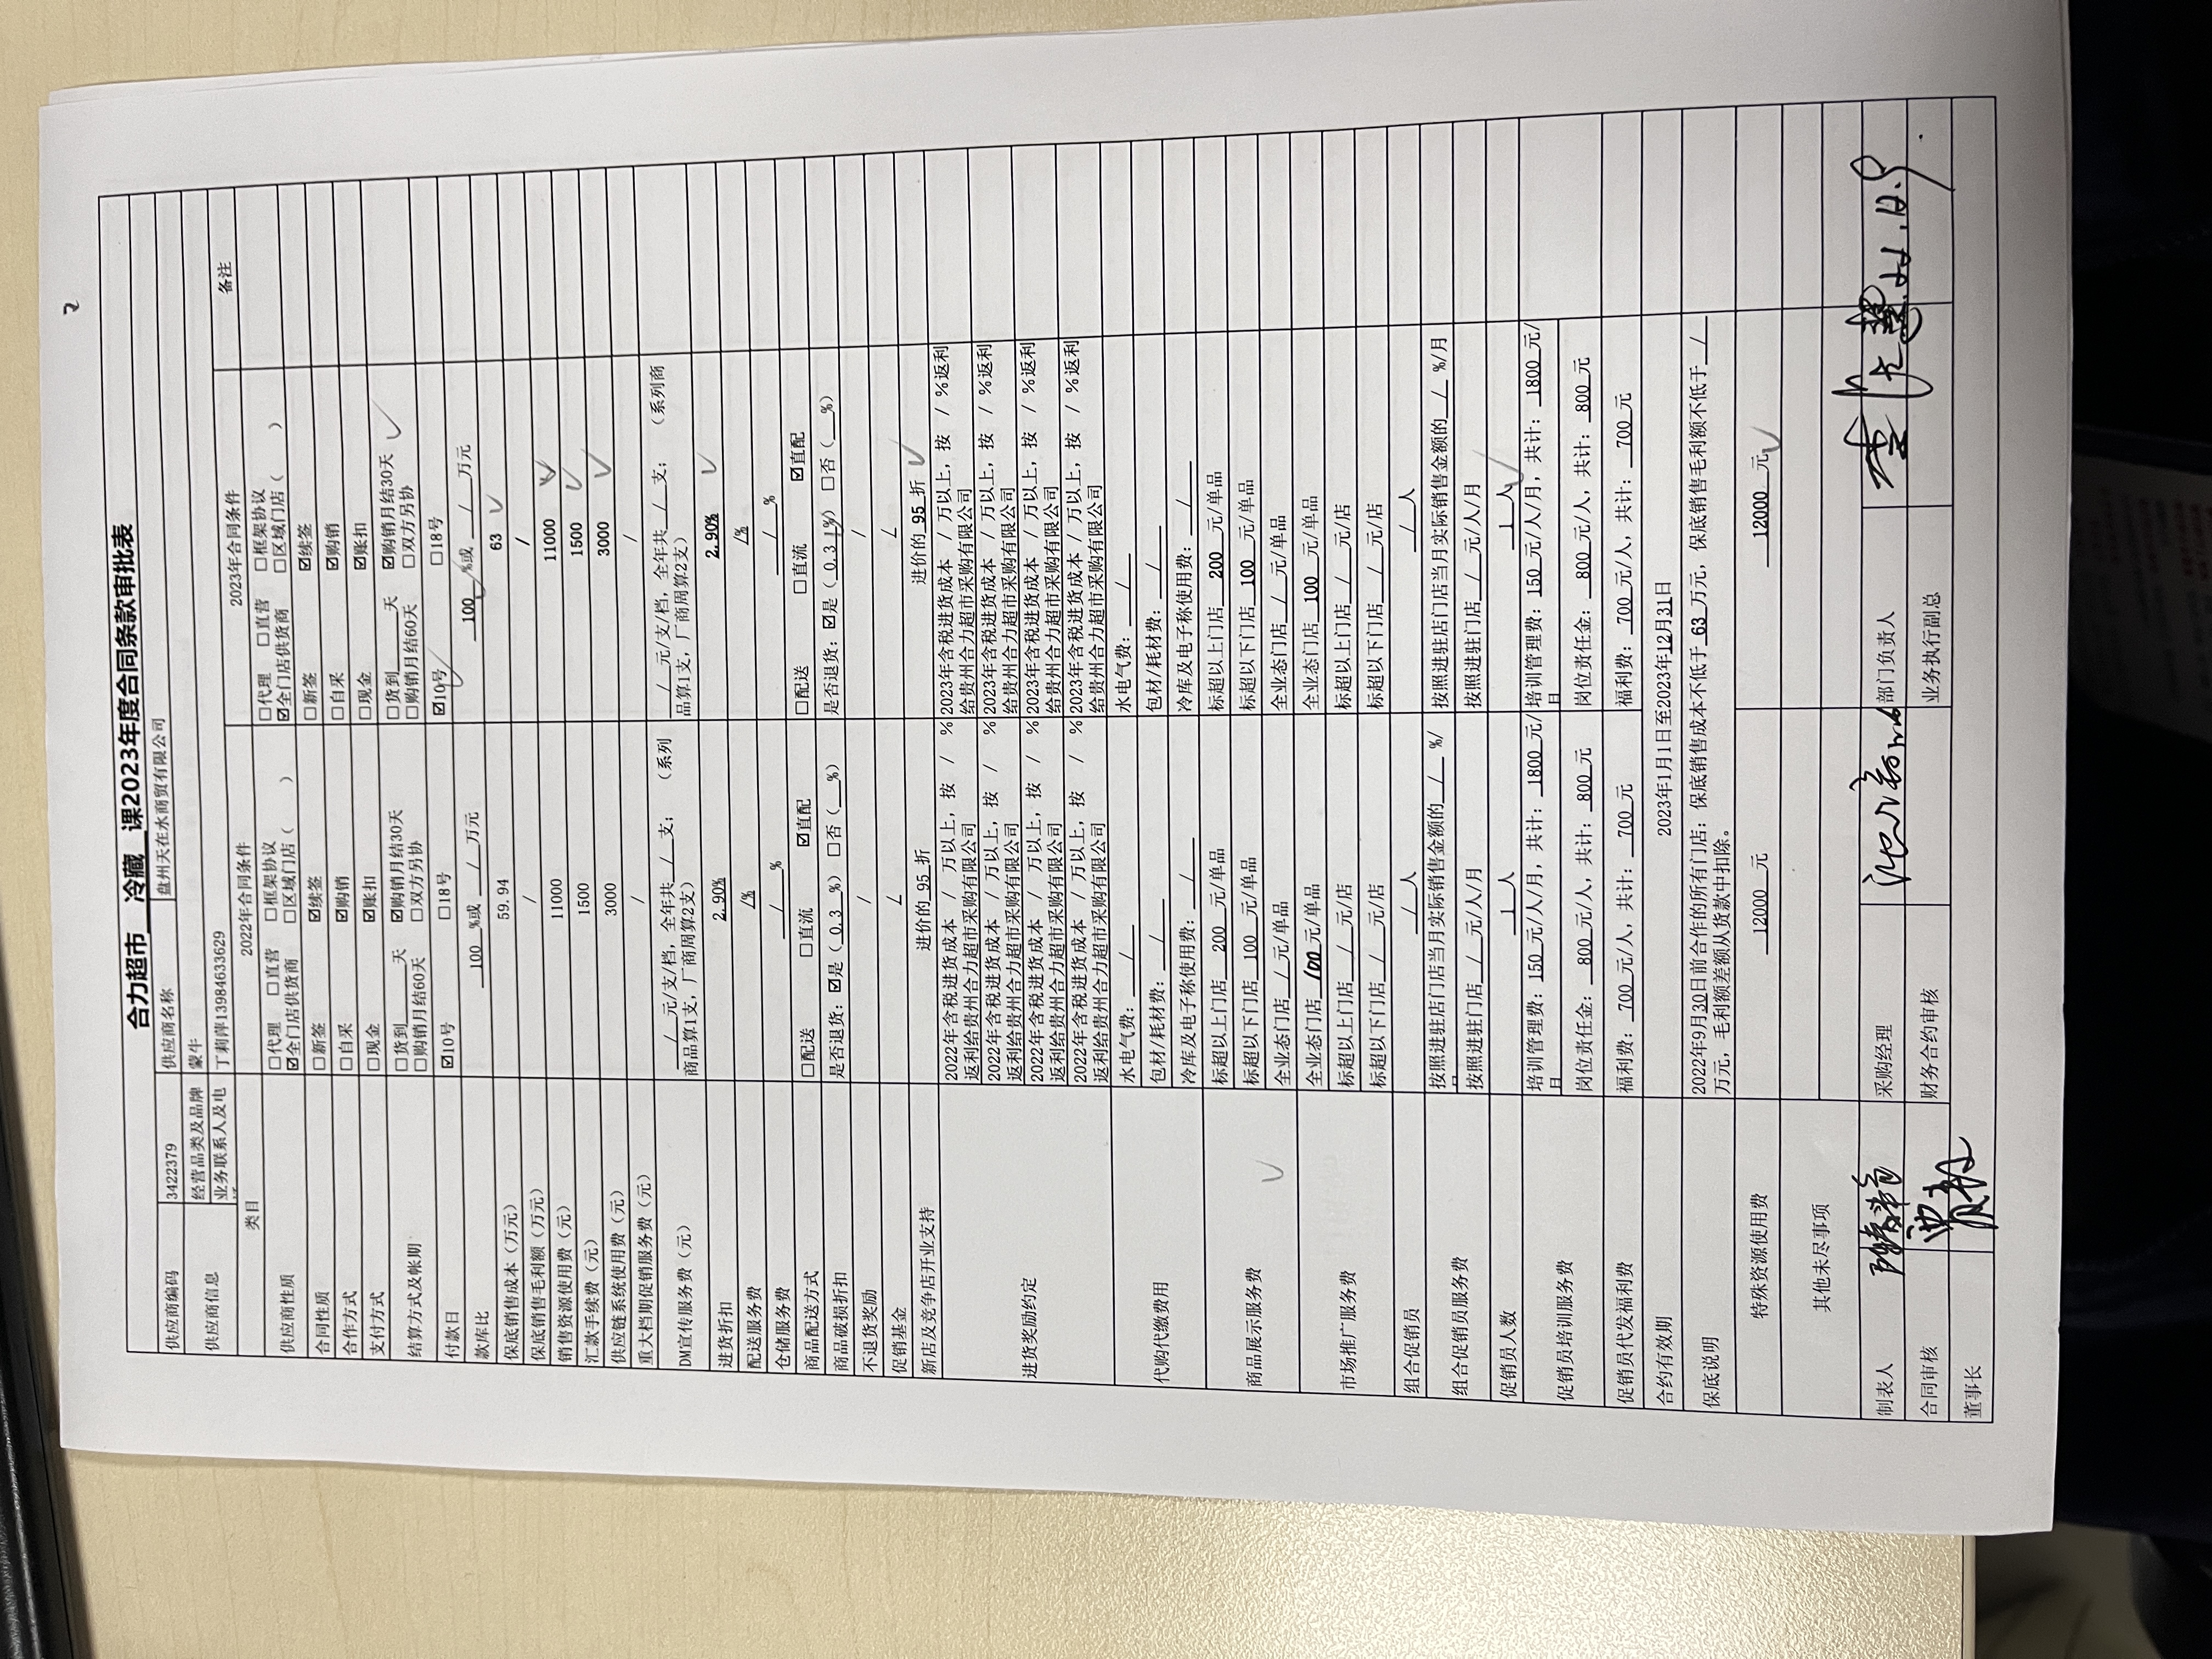 2
合力超市 冷藏 课2023年度合同条款审批表
供应商编码 3422379 供应商名称 盘州天在水商贸有限公司
供应商信息 经营品类及品牌 蒙牛
业务联系人及电 丁莉萍13984633629
类目 2022年合同条件 2023年合同条件 备注
供应商性质 □代理 □直营 □框架协议 □代理 □直营 □框架协议
☑全门店供货商 □区域门店（ ） ☑全门店供货商 □区域门店（ ）
合同性质 □新签 ☑续签 □新签 ☑续签
合作方式 □自采 ☑购销 □自采 ☑购销
支付方式 □现金 ☑账扣 □现金 ☑账扣
结算方式及帐期 □货到___天 ☑购销月结30天 □货到___天 ☑购销月结30天
□购销月结60天 □双方另协 □购销月结60天 □双方另协
付款日 ☑10号 □18号 ☑10号 □18号
款库比 100 %或 / 万元 100 %或 / 万元
保底销售成本（万元） 59.94 63
保底销售毛利额（万元） / /
销售资源使用费（元） 11000 11000
汇款手续费（元） 1500 1500
供应链系统使用费（元） 3000 3000
重大档期促销服务费（元） / /
DM宣传服务费（元） / 元/支/档，全年共 / 支； （系列 / 元/支/档，全年共 / 支； （系列商
商品算1支，厂商周算2支） 品算1支，厂商周算2支）
进货折扣 2.90% 2.90%
配送服务费 /% /%
仓储服务费 / % / %
商品配送方式 □配送 □直流 ☑直配 □配送 □直流 ☑直配
商品破损折扣 是否退货：☑是（ 0.3 %）□否（ %） 是否退货：☑是（ 0.3 %）□否（ %）
不退货奖励 / /
促销基金 / /
新店及竞争店开业支持 进价的 95 折 进价的 95 折
进货奖励约定 2022年含税进货成本 / 万以上，按 / % 2023年含税进货成本 / 万以上，按 / %返利
返利给贵州合力超市采购有限公司 给贵州合力超市采购有限公司
2022年含税进货成本 / 万以上，按 / % 2023年含税进货成本 / 万以上，按 / %返利
返利给贵州合力超市采购有限公司 给贵州合力超市采购有限公司
2022年含税进货成本 / 万以上，按 / % 2023年含税进货成本 / 万以上，按 / %返利
返利给贵州合力超市采购有限公司 给贵州合力超市采购有限公司
2022年含税进货成本 / 万以上，按 / % 2023年含税进货成本 / 万以上，按 / %返利
返利给贵州合力超市采购有限公司 给贵州合力超市采购有限公司
代购代缴费用 水电气费： / 水电气费： /
包材/耗材费： / 包材/耗材费： /
冷库及电子称使用费： / 冷库及电子称使用费： /
商品展示服务费 标超以上门店 200 元/单品 标超以上门店 200 元/单品
标超以下门店 100 元/单品 标超以下门店 100 元/单品
全业态门店 / 元/单品 全业态门店 / 元/单品
市场推广服务费 全业态门店 100 元/单品 全业态门店 100 元/单品
标超以上门店 / 元/店 标超以上门店 / 元/店
标超以下门店 / 元/店 标超以下门店 / 元/店
组合促销员 / 人 / 人
组合促销员服务费 按照进驻店门店当月实际销售金额的 / %/ 按照进驻店门店当月实际销售金额的 / %/月
按照进驻门店 / 元/人/月 按照进驻门店 / 元/人/月
促销员人数 1 人 1 人
促销员培训服务费 培训管理费：150 元/人/月，共计：1800 元/ 培训管理费：150 元/人/月，共计：1800 元/
岗位责任金：800 元/人，共计：800 元 岗位责任金：800 元/人，共计：800 元
促销员代发福利费 福利费：700 元/人，共计：700 元 福利费：700 元/人，共计：700 元
合约有效期 2023年1月1日至2023年12月31日
保底说明 2022年9月30日前合作的所有门店；保底销售成本不低于 63 万元，保底销售毛利额不低于 /
万元，毛利额差额从货款中扣除。
特殊资源使用费 12000 元 12000 元
其他未尽事项
制表人 采购经理 部门负责人
合同审核 财务合约审核 业务执行副总
董事长